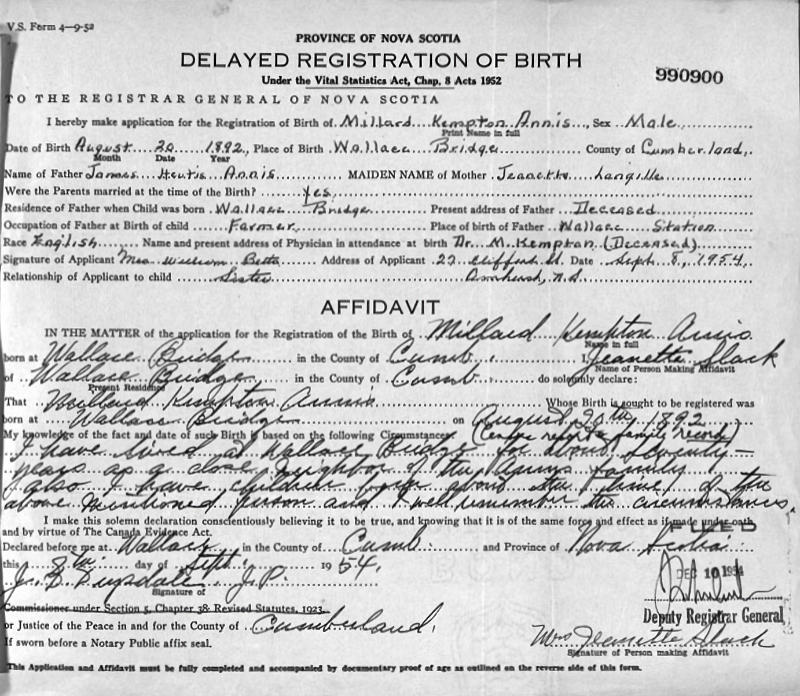 V.S. Form 4—9-52
PROVINCE OF NOVA SCOTIA
DELAYED REGISTRATION OF BIRTH
Under the Vital Statistics Act, Chap. 8 Acts 1952
990900
TO THE REGISTRAR GENERAL OF NOVA SCOTIA
I hereby make application for the Registration of Birth of Millard Kempton Annis, Sex Male
Print Name in full
Date of Birth August 20 1892, Place of Birth Wallace Bridge County of Cumberland,
Month Date Year
Name of Father James Annis MAIDEN NAME of Mother Jeanette Langille
Were the Parents married at the time of the Birth? Yes
Residence of Father when Child was born Wallace Bridge Present address of Father Deceased
Occupation of Father at Birth of child Farmer Place of birth of Father Wallace Station
Race English Name and present address of Physician in attendance at birth Dr. M. Kempton (Deceased)
Signature of Applicant Mrs William Betts Address of Applicant 22 Clifford St. Date Sept 8, 1954,
Relationship of Applicant to child Sister Amherst, N.S.
AFFIDAVIT
IN THE MATTER of the application for the Registration of the Birth of Millard Kempton Annis
Name in full
born at Wallace Bridge in the County of Cumb. I, Jeanette Slack
Name of Person Making Affidavit
of Wallace Bridge in the County of Cumb. do solemnly declare:
Present Residence
That Millard Kempton Annis Whose Birth is sought to be registered was
born at Wallace Bridge on August 20th 1892
My knowledge of the fact and date of such Birth is based on the following Circumstances (family record)
I have lived at Wallace Bridge for about seventy-
years as a close neighbor of the Annis family
also I have children born about the time of the
above mentioned person and I well remember the circumstances.
I make this solemn declaration conscientiously believing it to be true, and knowing that it is of the same force and effect as if made under oath
and by virtue of The Canada Evidence Act.
FILED
Declared before me at Wallace in the County of Cumb. and Province of Nova Scotia
this 8th day of Sept. 1954.
DEC 10 1954
J. B. J.P.
Signature of
Deputy Registrar General
Commissioner under Section 5, Chapter 38 Revised Statutes, 1923
or Justice of the Peace in and for the County of Cumberland.
Mrs Jeanette Slack
If sworn before a Notary Public affix seal.
Signature of Person making Affidavit
This Application and Affidavit must be fully completed and accompanied by documentary proof of age as outlined on the reverse side of this form.